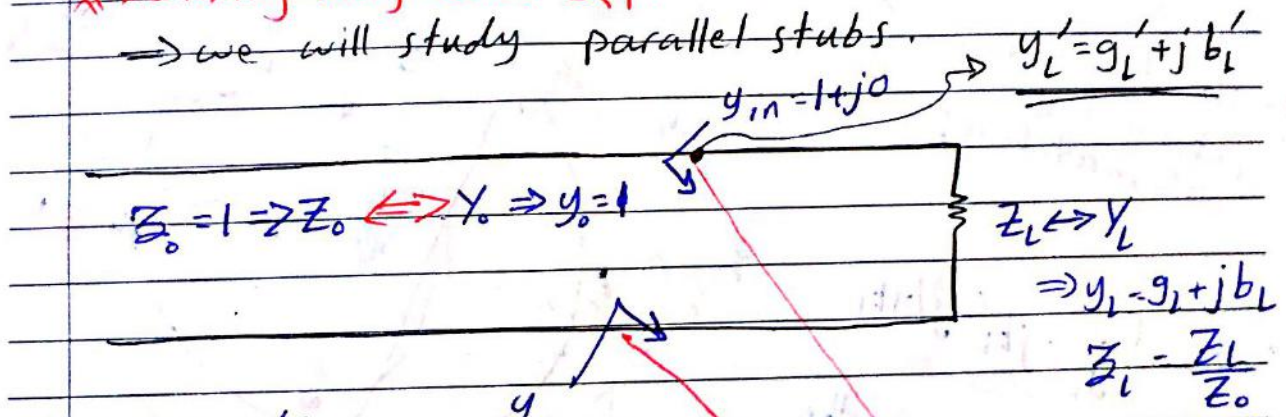 ⇒ we will study parallel stubs.
y_L' = g_L' + j b_L'
y_in = 1+j0
z_0 = 1 ⇒ Z_0 ⇔ Y_0 ⇒ y_0 = 1
Z_L ↔ Y_L
⇒ y_L = g_L + j b_L
z_L = Z_L / Z_0
y